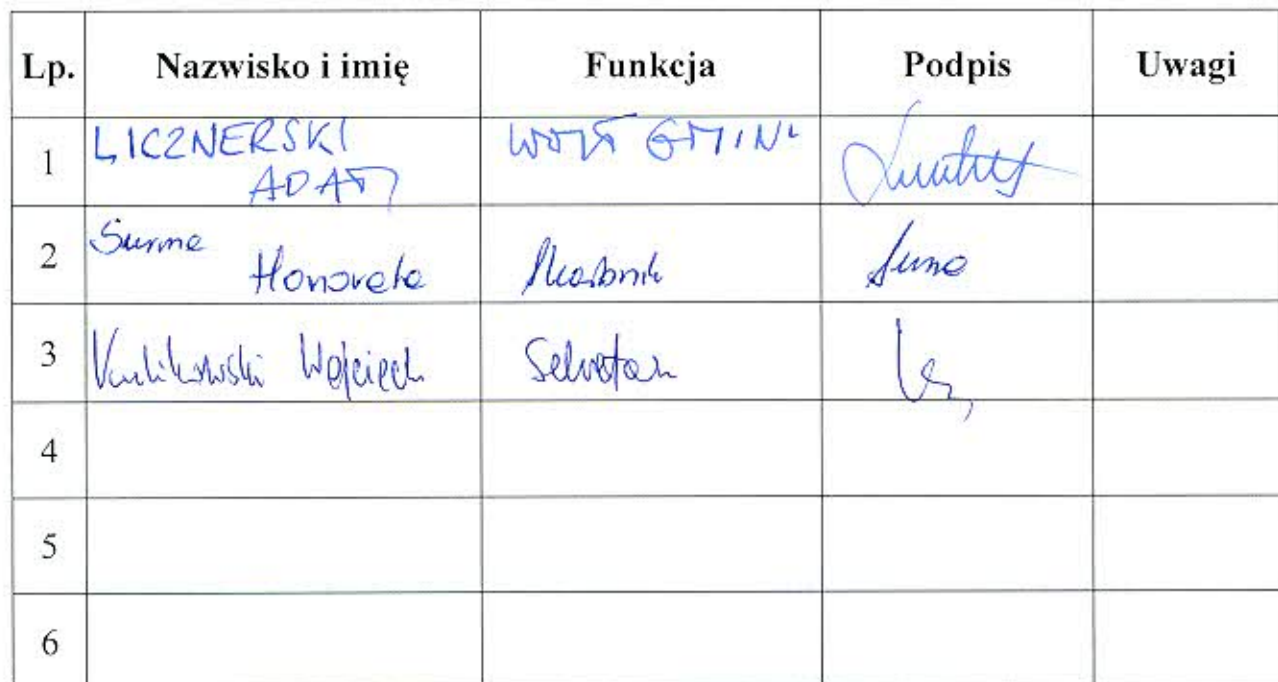 Lp. Nazwisko i imię Funkcja Podpis Uwagi
1 LICZNERSKI WÓJT GMINY
ADAM
2 Surma
Honorata Skarbnik Surma
3 Wojciech Sekretarz
4
5
6